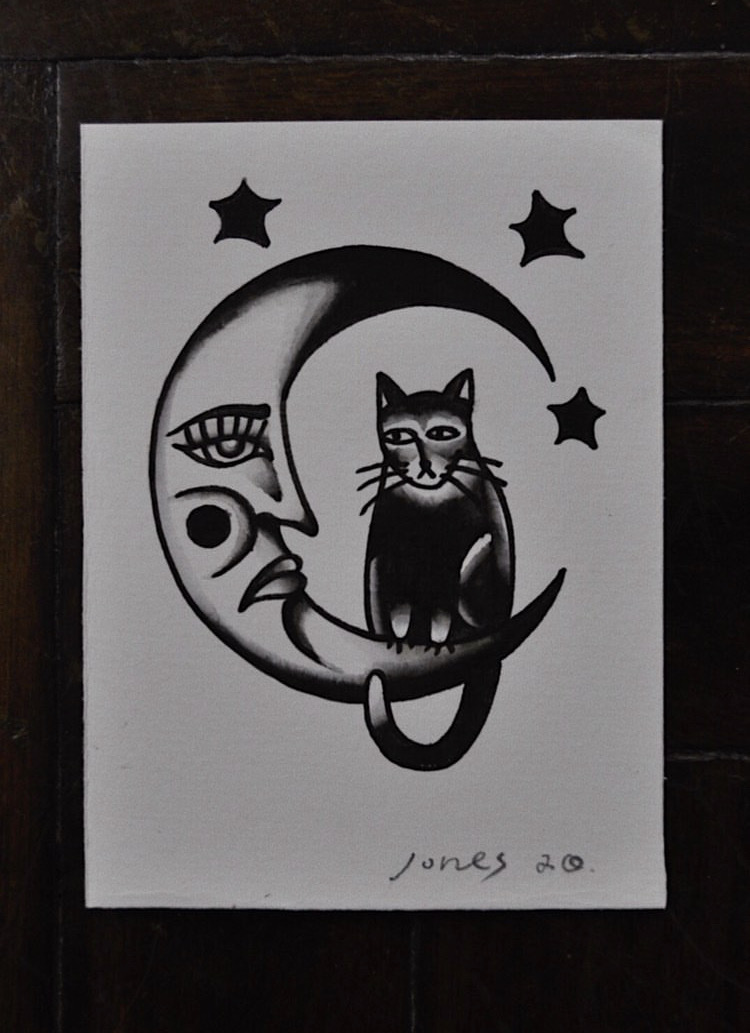 Jones 20.